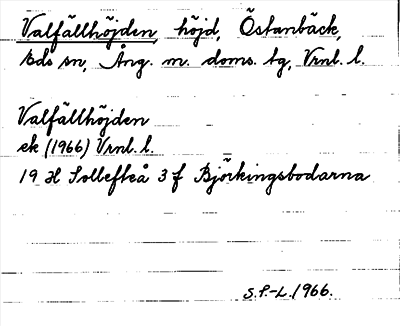 Valfällhöjden, höjd, Östanbäck,
Eds sn, Ång. m. doms. tg, Vrnl. l.
Valfällhöjden
ek (1966) Vrnl. l.
19 H Sollefteå 3 f Björkingsbodarna
S.P.-L. 1966.